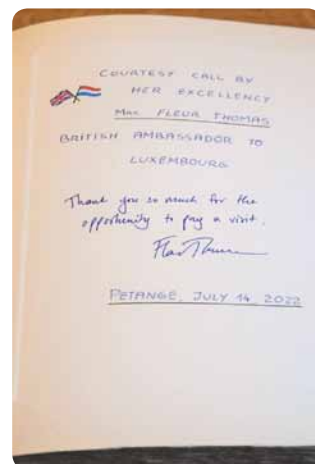 COURTESY CALL BY
HER EXCELLENCY
Mme FLEUR THOMAS
BRITISH AMBASSADOR TO
LUXEMBOURG
Thank you so much for the
opportunity to pay a visit.
Fleur Thomas
PETANGE, JULY 14, 2022